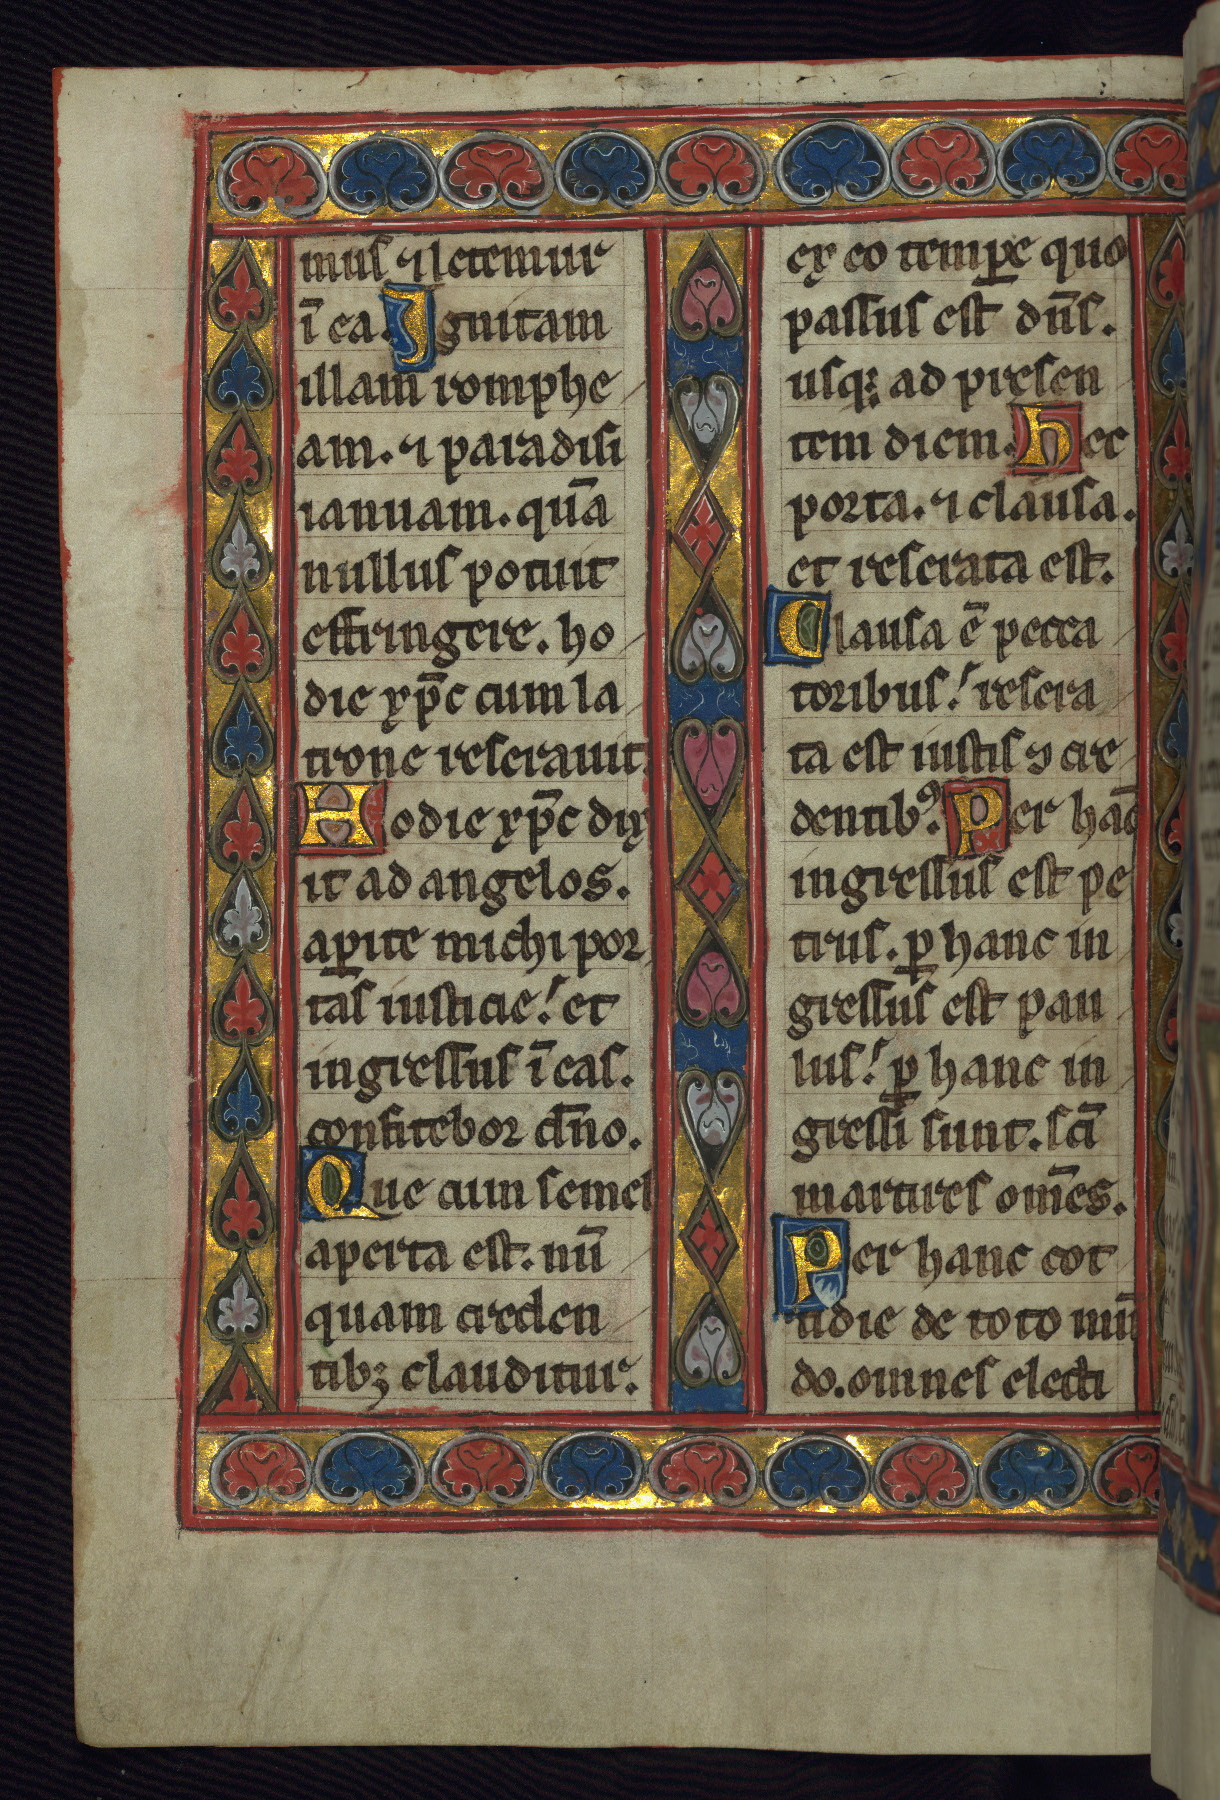 mus ⁊ letemur
ī ea. Ignitam
illam romphe
am. ⁊ paradisi
ianuam. quā
nullus potuit
effringere. ho
die xp̄c cum la
trone reserauit.
Hodie xp̄c dix
it ad angelos.
aꝑite michi por
tas iusticie! et
ingressus ī eas.
confitebor dn̄o.
Que cum semel
aperta est. nū
quam creden
tibꝫ clauditur.
ex eo temꝑe quo
passus est dn̄s.
usqꝫ ad presen
tem diem. hec
porta. ⁊ clausa.
et reserata est.
Clausa ē pecca
toribus! resera
ta est iustis ⁊ cre
dentibꝰ. Per hāc
ingressus est pe
trus. ꝑ hanc in
gressus est pau
lus! ꝑ hanc in
gressi sunt. sc̄i
martires om̄es.
Per hanc cot
tidie de toto mū
do. omnes electi